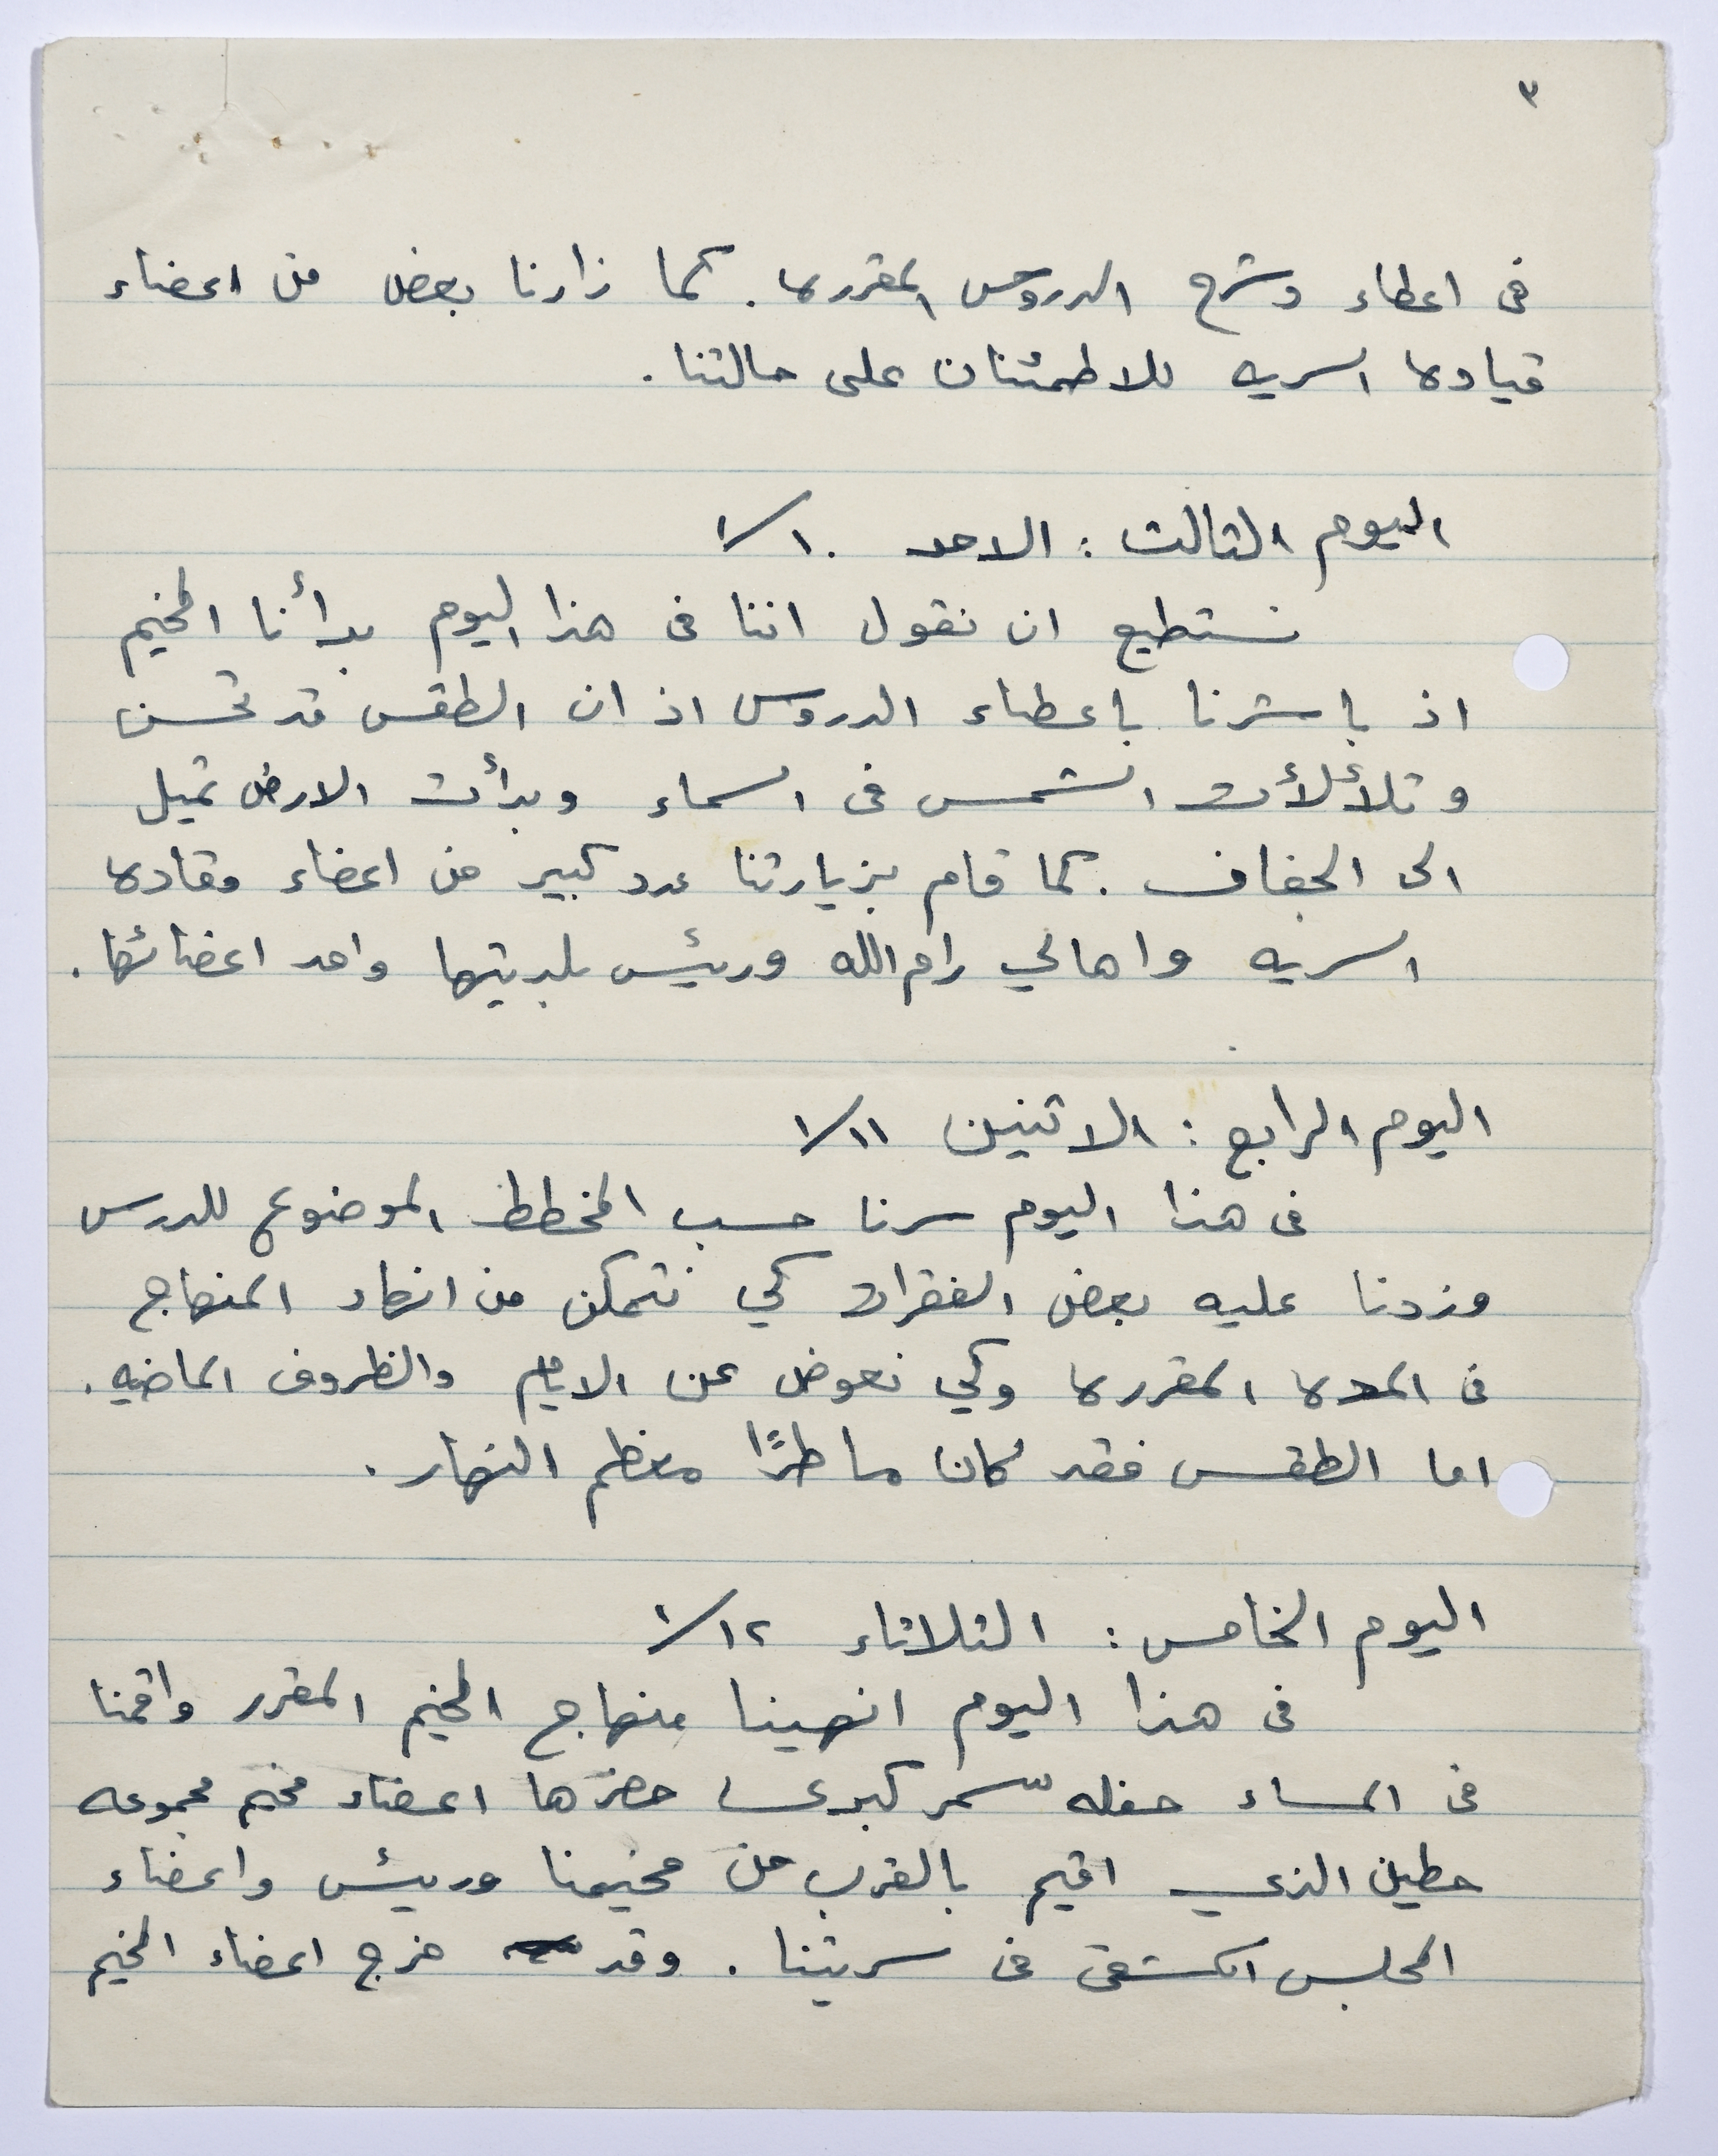 ٣
في اعطاء وشرح الدروس المقررة. كما زارنا بعض من اعضاء
قيادة السريه للاطمئنان على حالتنا.
اليوم الثالث: الاحد ١٠/١
نستطيع ان نقول اننا في هذا اليوم بدأنا المخيم
اذ باشرنا باعطاء الدروس اذ ان الطقس قد تحسن
وتلألأت الشمس في السماء وبدأت الارض تميل
الى الجفاف. كما قام بزيارتنا عدد كبير من اعضاء وقادة
السريه واهالي رام الله ورئيس بلديتها واحد اعضائها.
اليوم الرابع: الاثنين ١١/١
في هذا اليوم سرنا حسب المخطط الموضوع للدرس
وزدنا عليه بعض الفقرات كي نتمكن من انهاء المنهاج
في المدة المقررة وكي نعوض عن الايام والظروف الماضيه.
اما الطقس فقد كان ماطرًا معظم النهار.
اليوم الخامس: الثلاثاء ١٢/١
في هذا اليوم انهينا منهاج المخيم المقرر واقمنا
في المساء حفله سمر كبرى حضرها اعضاء مخيم مجموعه
حطين الذي اقيم بالقرب من مخيمنا ورئيس واعضاء
المجلس الكشفي في سريتنا. وقد خرج اعضاء المخيم